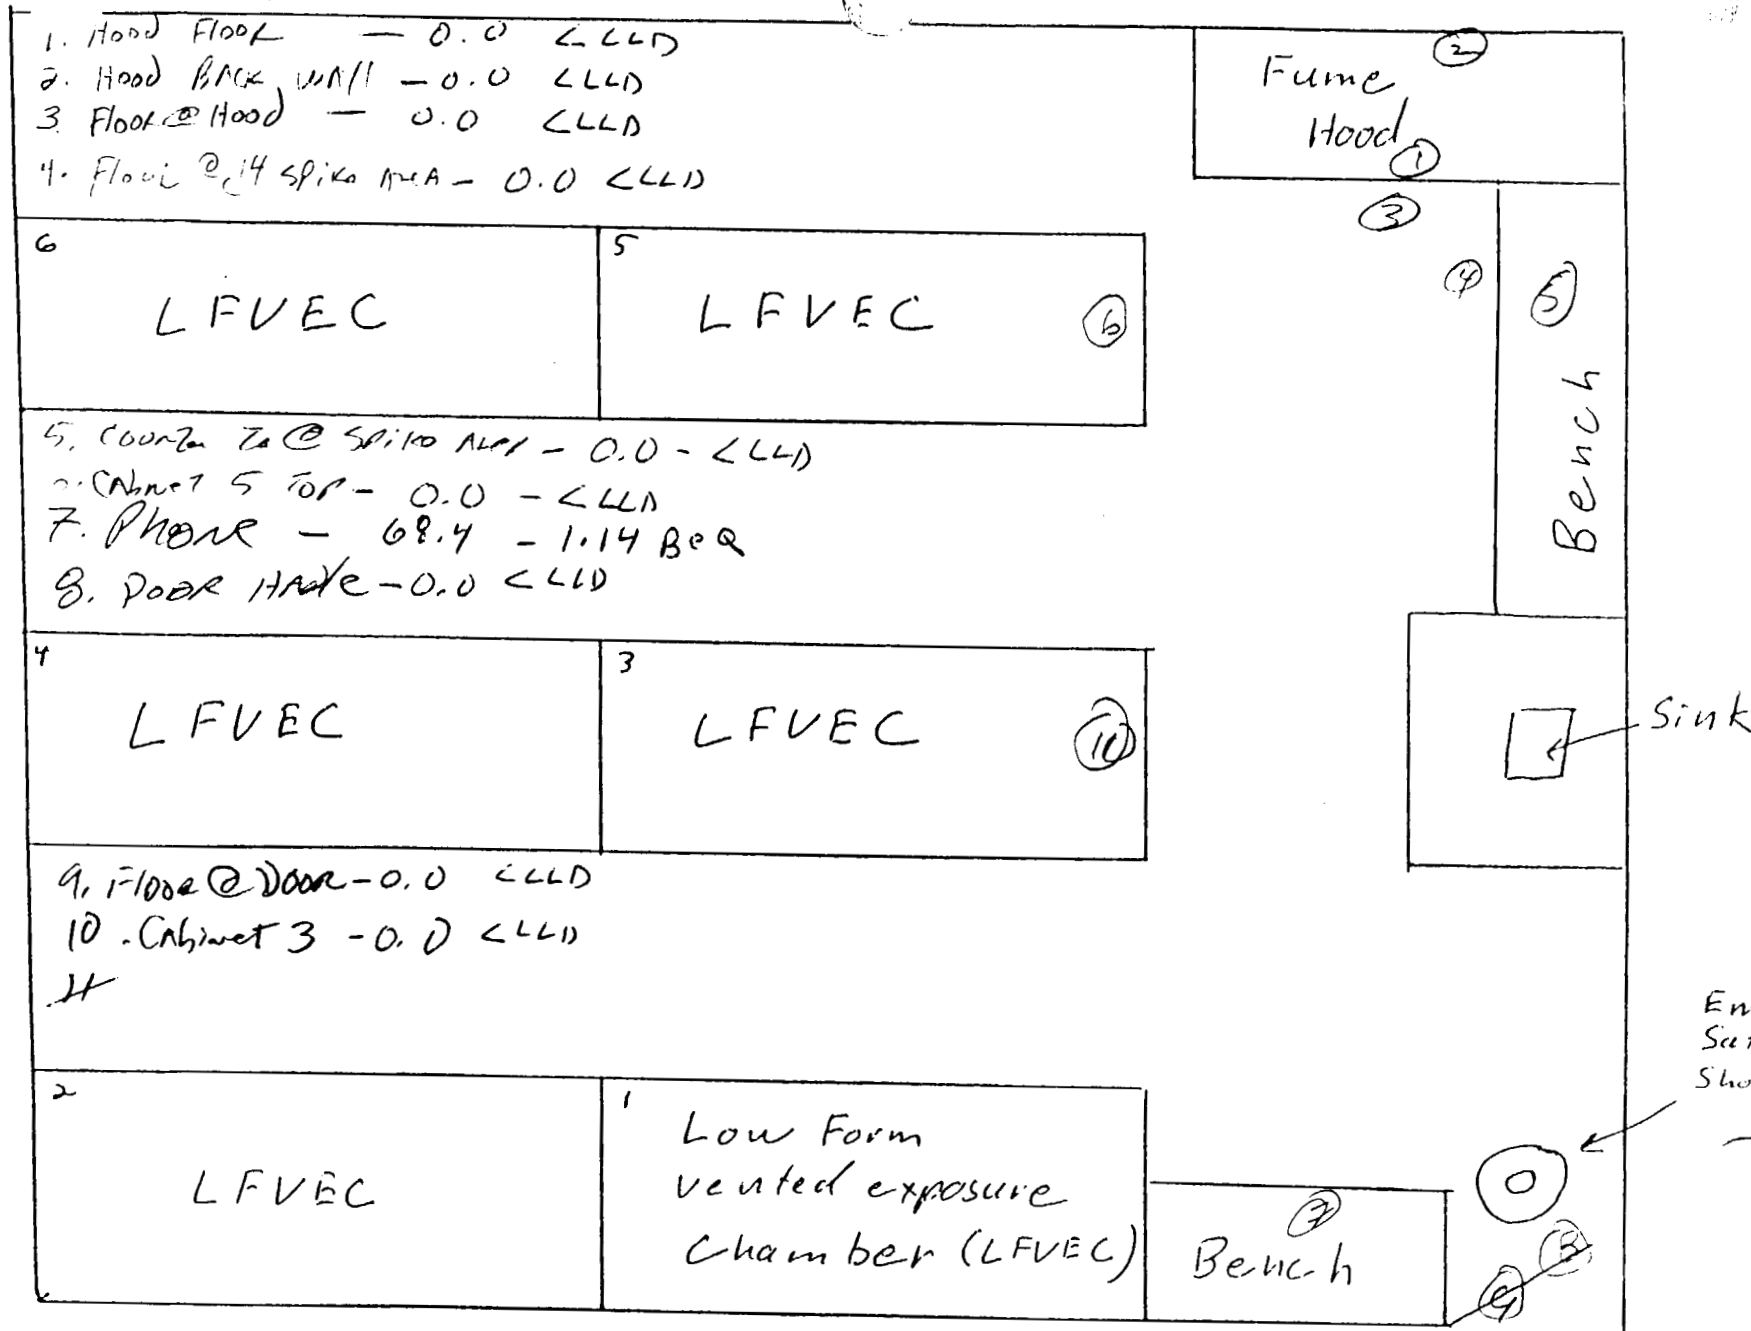 1. Hood Floor — 0.0 <LLD
2. Hood Back wall - 0.0 <LLD
3. Floor @ Hood — 0.0 <LLD
4. Floor @ 14 Spike Area - 0.0 <LLD
Fume
Hood
2
1
3
4
5
Bench
6
LFVEC
5
LFVEC
6
5. @ Spike Area - 0.0 - <LLD
Cabinet 5 Top - 0.0 - <LLD
7. Phone - 68.4 - 1.14 BeQ
8. Door Handle - 0.0 <LLD
4
LFVEC
3
LFVEC
10
Sink
9. Floor @ Door - 0.0 <LLD
10. Cabinet 3 - 0.0 <LLD
2
LFVEC
1
Low Form
vented exposure
Chamber (LFVEC)
7
Bench
8
9